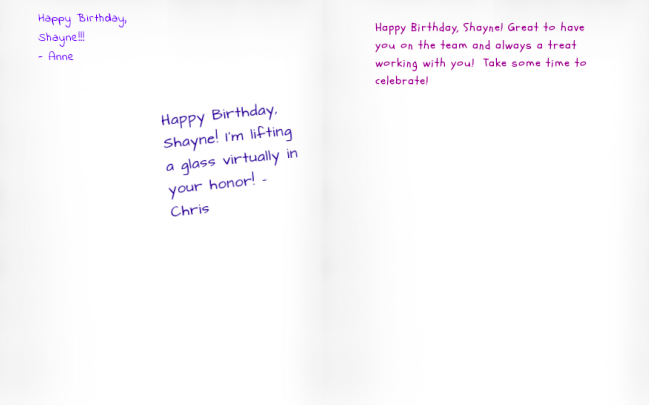 Happy Birthday,
Shayne!!!
- Anne
Happy Birthday,
Shayne! I'm lifting
a glass virtually in
your honor! -
Chris
Happy Birthday, Shayne! Great to have
you on the team and always a treat
working with you!  Take some time to
celebrate!